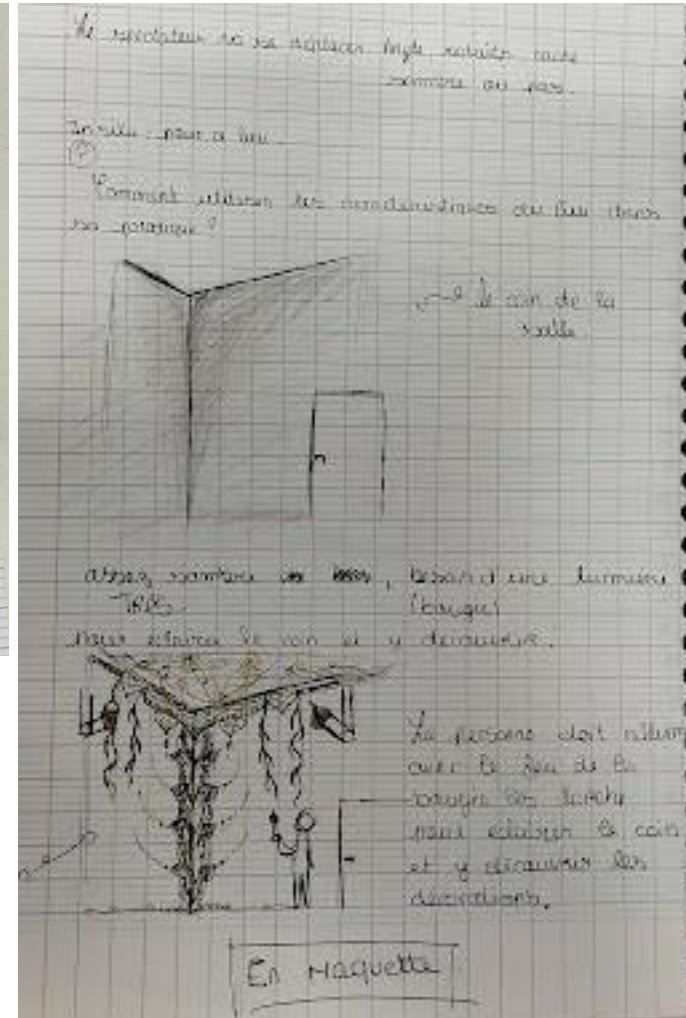 le spectateur va se déplacer Angle
sombre ou pas.
In situ pour a lieu
(?)
Comment utiliser les caractéristiques du lieu dans
sa pratique ?
le coin de la
salle
assez sombre, besoin d'une lumière
TRES (bougie)
pour éclairer le coin et y découvrir.
La persone doit allumer
avec le feu de la
bougie les torche
pour éclairer le coin
et y découvrir les
décorations.
En Maquette